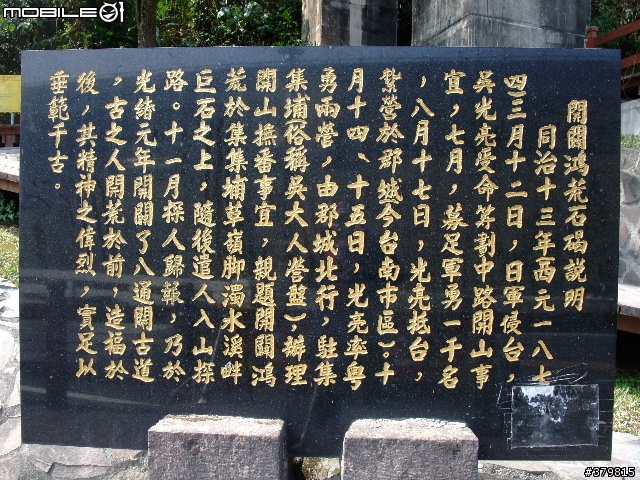 開闢鴻荒石碣說明
同治十三年西元一八七
四三月十二日，日軍侵台，
吳光亮受命籌劃中路開山事
宜，七月，募足軍勇一千名
，八月十七日，光亮抵台，
紮營於郡城今台南市區)。十
月十四、十五日，光亮率粵
勇兩營，由郡城北行，駐集
集埔俗稱吳大人營盤)，辦理
開山撫番事宜，親題開闢鴻
荒於集集埔草嶺腳濁水溪畔
巨石之上，隨後遣人入山探
路。十一月探人歸報，乃於
光緒元年開闢了八通關古道
，古之人開荒於前，造福於
後，其精神之偉烈，實足以
垂範千古。
MOBILE01
#379815